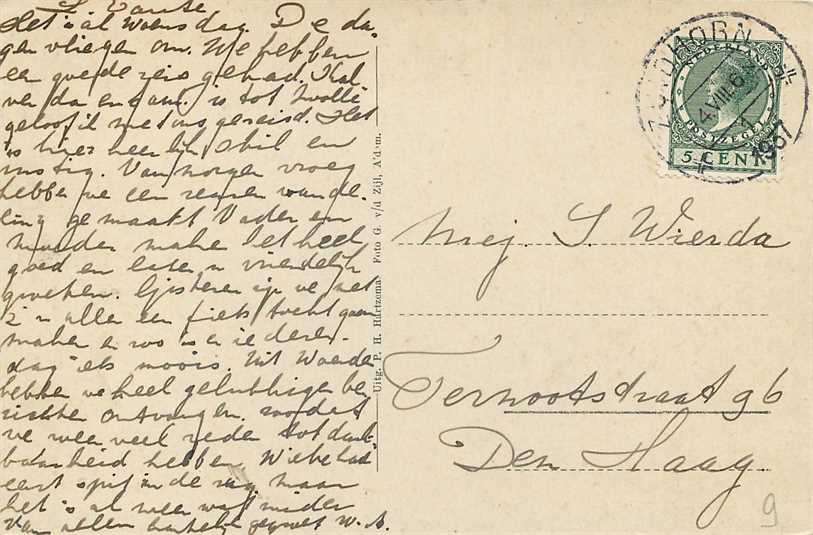 L. Tante
Het is al Woensdag. De da-
gen vliegen om. We hebben
een goede reis gehad. Kal
ver da en cam. is tot Zwolle
geloof ik met ons gereisd. Het
is hier heerlijk stil en
rustig. Van morgen vroeg
hebben we een wande-
ling gemaakt Vader en
moeder maken het heel
goed en laten u vriendelijk
groeten. Gisteren zijn we met
z'n allen een fietstocht gaan
maken er was is er iedere
dag iets moois. Uit Woerden
hebben we heel gelukkige be
richten ontvangen. zoodat
we weer veel reden tot dank
baarheid hebben. Wiebe had
eerst spit in de rug maar
het is al weer wat minder
Van allen hartelijk gegroet W. A.
Uitg. P. H. Hartzema. Foto G. v/d Zijl, A'd·m.
ZUIDHORN
4 VIII 6
1937
NEDERLAND
POSTZEGEL
5 CENT
Mej. S. Wierda
Ternootstraat 96
Den Haag
9